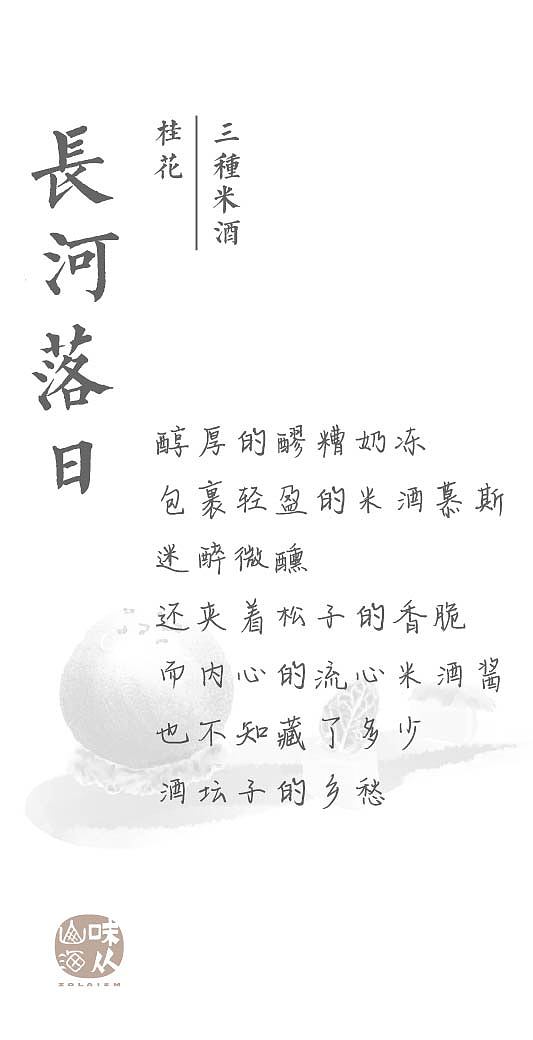 長河落日
三種米酒
桂花
醇厚的醪糟奶冻
包裹轻盈的米酒慕斯
迷醉微醺
还夹着松子的香脆
而内心的流心米酒酱
也不知藏了多少
酒坛子的乡愁
味从
山海